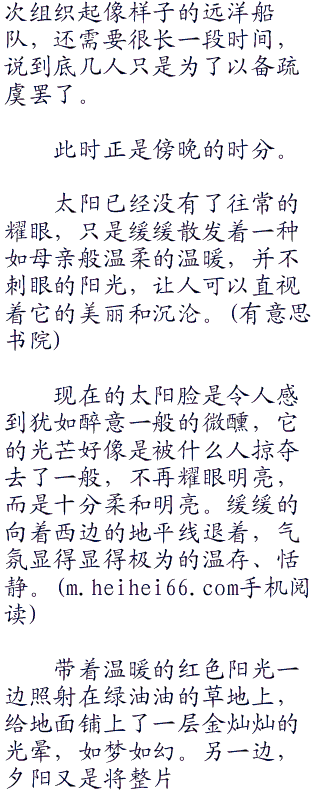 次组织起像样子的远洋船
队，还需要很长一段时间，
说到底几人只是为了以备疏
虞罢了。
此时正是傍晚的时分。
太阳已经没有了往常的
耀眼，只是缓缓散发着一种
如母亲般温柔的温暖，并不
刺眼的阳光，让人可以直视
着它的美丽和沉沦。(有意思
书院)
现在的太阳脸是令人感
到犹如醉意一般的微醺，它
的光芒好像是被什么人掠夺
去了一般，不再耀眼明亮，
而是十分柔和明亮。缓缓的
向着西边的地平线退着，气
氛显得显得极为的温存、恬
静。(m.heihei66.com手机阅
读)
带着温暖的红色阳光一
边照射在绿油油的草地上，
给地面铺上了一层金灿灿的
光晕，如梦如幻。另一边，
夕阳又是将整片